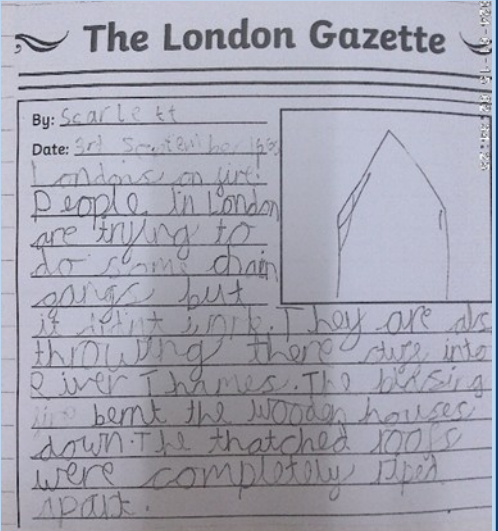 The London Gazette
By: Scarlett
Date: 3rd September
London's on fire.
People in London
are trying to
do some chain
gangs but
it didnt work. They are als
throwing there into
River Thames. The blasing
fire bernt the wooden houses
down. The thatched roofs
were completely riped
apart.